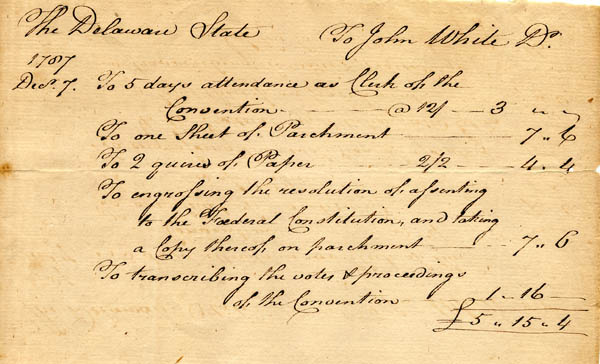 The Delaware State To John White Dr.
1787
Decr. 7. To 5 days attendance as Clerk of the
Convention @ 12/ 3 " "
To one Sheet of Parchment 7 " 6
To 2 quires of Paper 2/2 4 " 4
To engrossing the resolution of assenting
to the Fœderal Constitution, and taking
a Copy thereof on parchment 7 " 6
To transcribing the votes & proceedings
of the Convention 1 " 16 "
£ 5 " 15 " 4